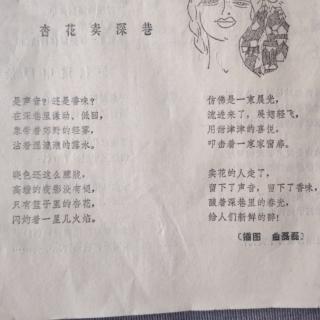 杏花卖深巷
是声音？还是香味？
在深巷里谦动、低回，
象带着郊野的轻雾，
沾着湿漉漉的露水。
晓色还这么朦胧，
高墙的夜影没有褪，
只有篮子里的杏花，
闪灼着一星儿火焰。
仿佛是一束晨光，
流进来了，展翅轻飞，
用甜津津的喜悦，
叩击着一家家窗扉。
卖花的人走了，
留下了声音，留下了香味，
酿着深巷里的春光，
给人们新鲜的醉！
（插图 金磊磊）